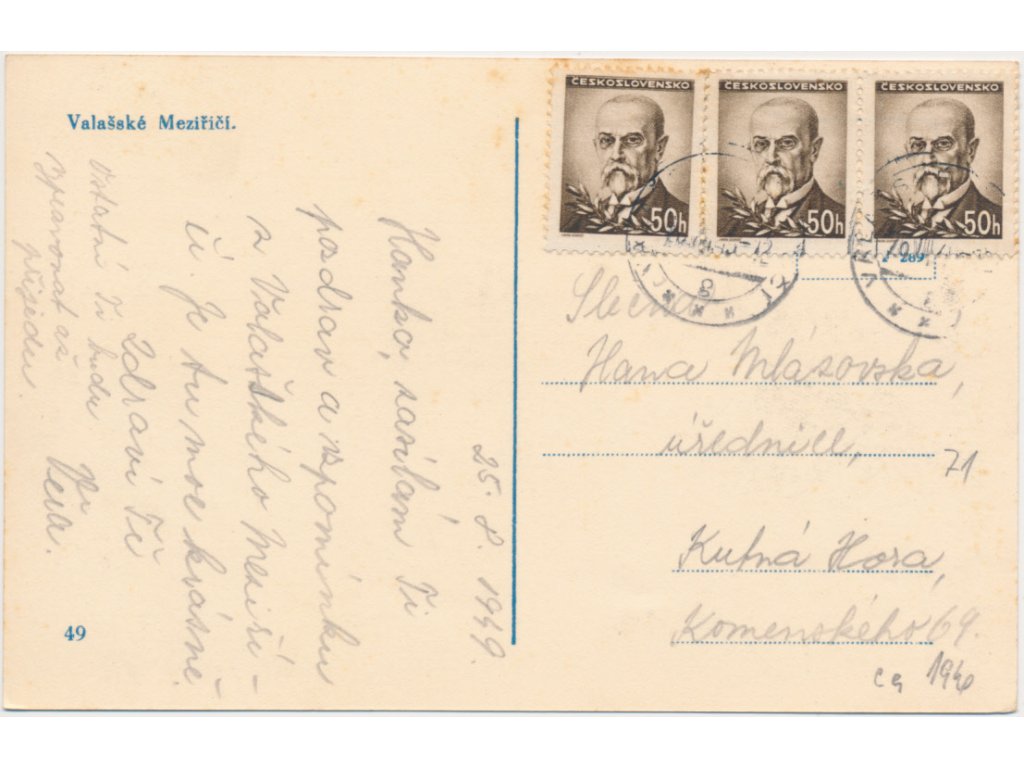 Valašské Meziříčí.
25. 8. 1949.
Hanko, zasílám Ti
pozdrav a vzpomínku
z Valašského Meziří-
čí. Je tu moc krásně.
Zdraví Tě
Ostatní Ti budu
zpravovat až
přijedu
49
ČESKOSLOVENSKO
50h
ČESKOSLOVENSKO
50h
ČESKOSLOVENSKO
50h
289
Slečna
Hana Mlázovska,
úřednice,
71
Kutná Hora,
Komenského 69.